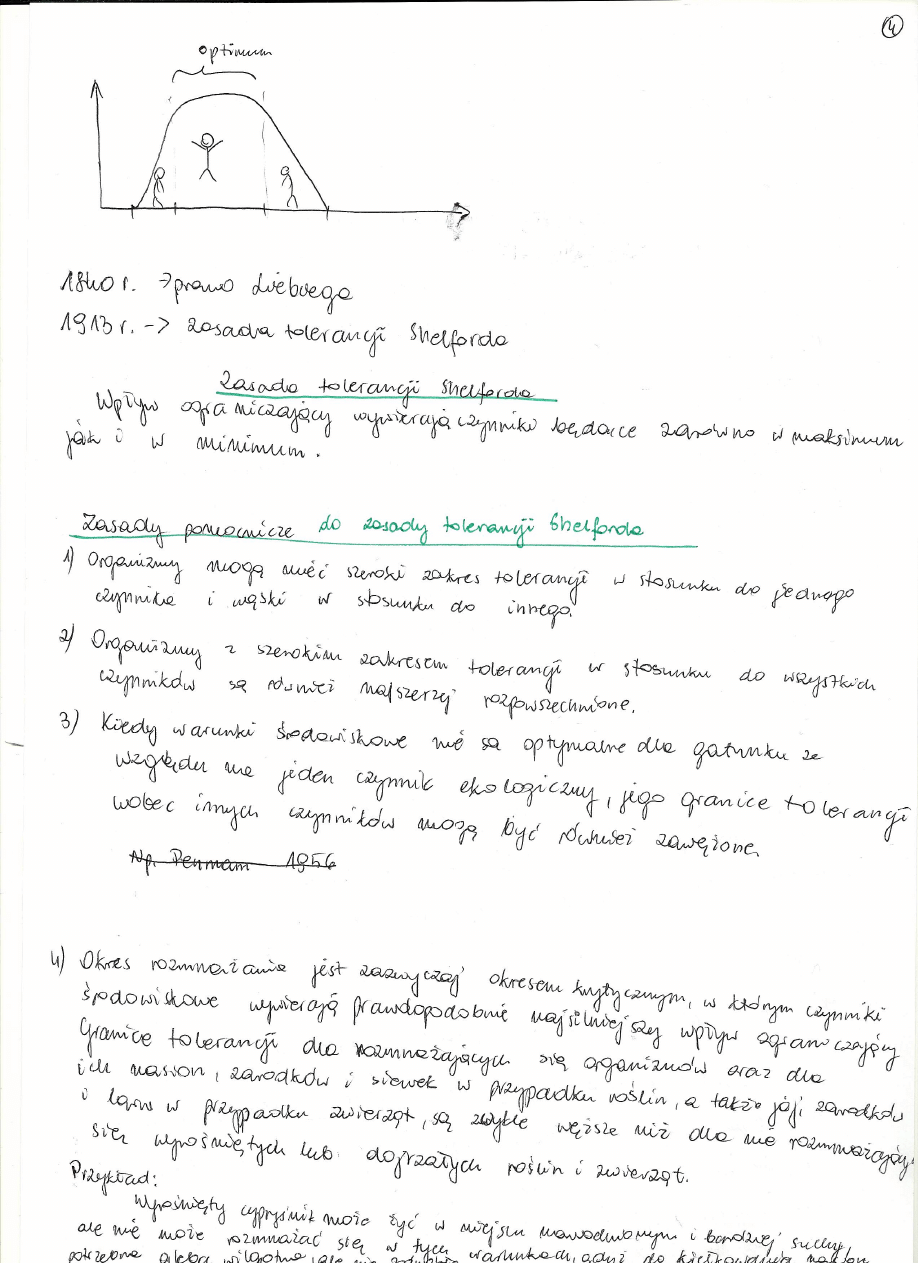 4
optimum
1840 r. → prawo Liebiega
1913 r. -> zasada tolerancji Shelforda
Zasada tolerancji Shelforda
Wpływ ograniczający wywierają czynniki będące zarówno w maksimum
jak i w minimum.
Zasady pomocnicze do zasady tolerancji Shelforda
1) Organizmy mogą mieć szeroki zakres tolerancji w stosunku do jednego
czynnika i wąski w stosunku do innego.
2) Organizmy z szerokim zakresem tolerancji w stosunku do wszystkich
czynników są również najszerzej rozpowszechnione.
3) Kiedy warunki środowiskowe nie są optymalne dla gatunku ze
względu na jeden czynnik ekologiczny, jego granice tolerancji
wobec innych czynników mogą być również zawężone.
Np. Penmam 1956
4) Okres rozmnażania jest zazwyczaj okresem krytycznym, w którym czynniki
środowiskowe wywierają prawdopodobnie najsilniejszy wpływ ograniczający
Granice tolerancji dla rozmnażających się organizmów oraz dla
ich nasion, zarodków i siewek w przypadku roślin, a także jaj, zarodków
i larw w przypadku zwierząt, są zwykle węższe niż dla nie rozmnażający
się wyrośniętych lub dojrzałych roślin i zwierząt.
Przykład:
Wyrośnięty cypryśnik może żyć w miejscu nawodnionym i bardziej suchy,
ale nie może rozmnażać się w tych warunkach, gdyż do kiełkowania nasion
potrzebna gleba wilgotna